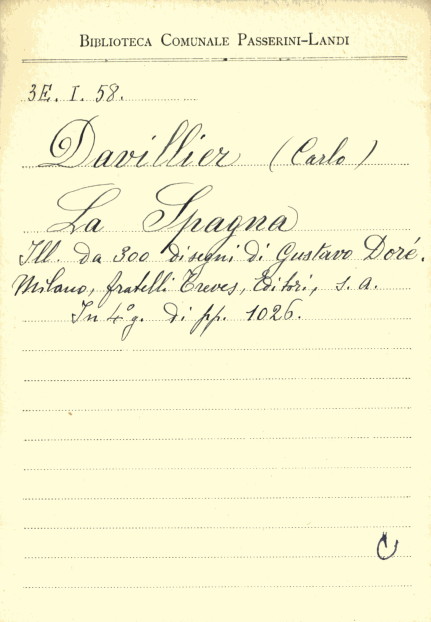 Biblioteca Comunale Passerini-Landi
3E. I. 58.
Davillier (Carlo)
La Spagna
Ill. da 300 disegni di Gustavo Doré.
Milano, fratelli Treves, Editori, s. a.
In 4° g. di pp. 1026.